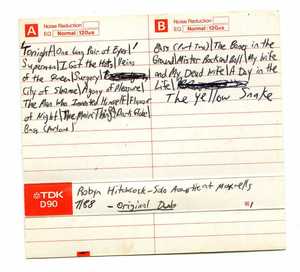 A
Noise Reduction
EQ Normal:120µs
Tonight/One Long Pair of Eyes/
Superman/I Got the Hots/Veins
of the Queen/Surgery/
City of Shame/Agony of Pleasure/
The Man Who Invented Himself/Flavour
of Night/
Eras (Part One)
B
Noise Reduction
EQ Normal:120µs
Eras (Part Two)/The Bones in the
Ground/Mister Rock and Roll/My Wife
and My Dead Wife/A Day in the
Life/
The Yellow Snake
TDK
D90
Robyn Hitchcock - Solo Acoustic at Maxwell's
7/88 - Original Dub
#1